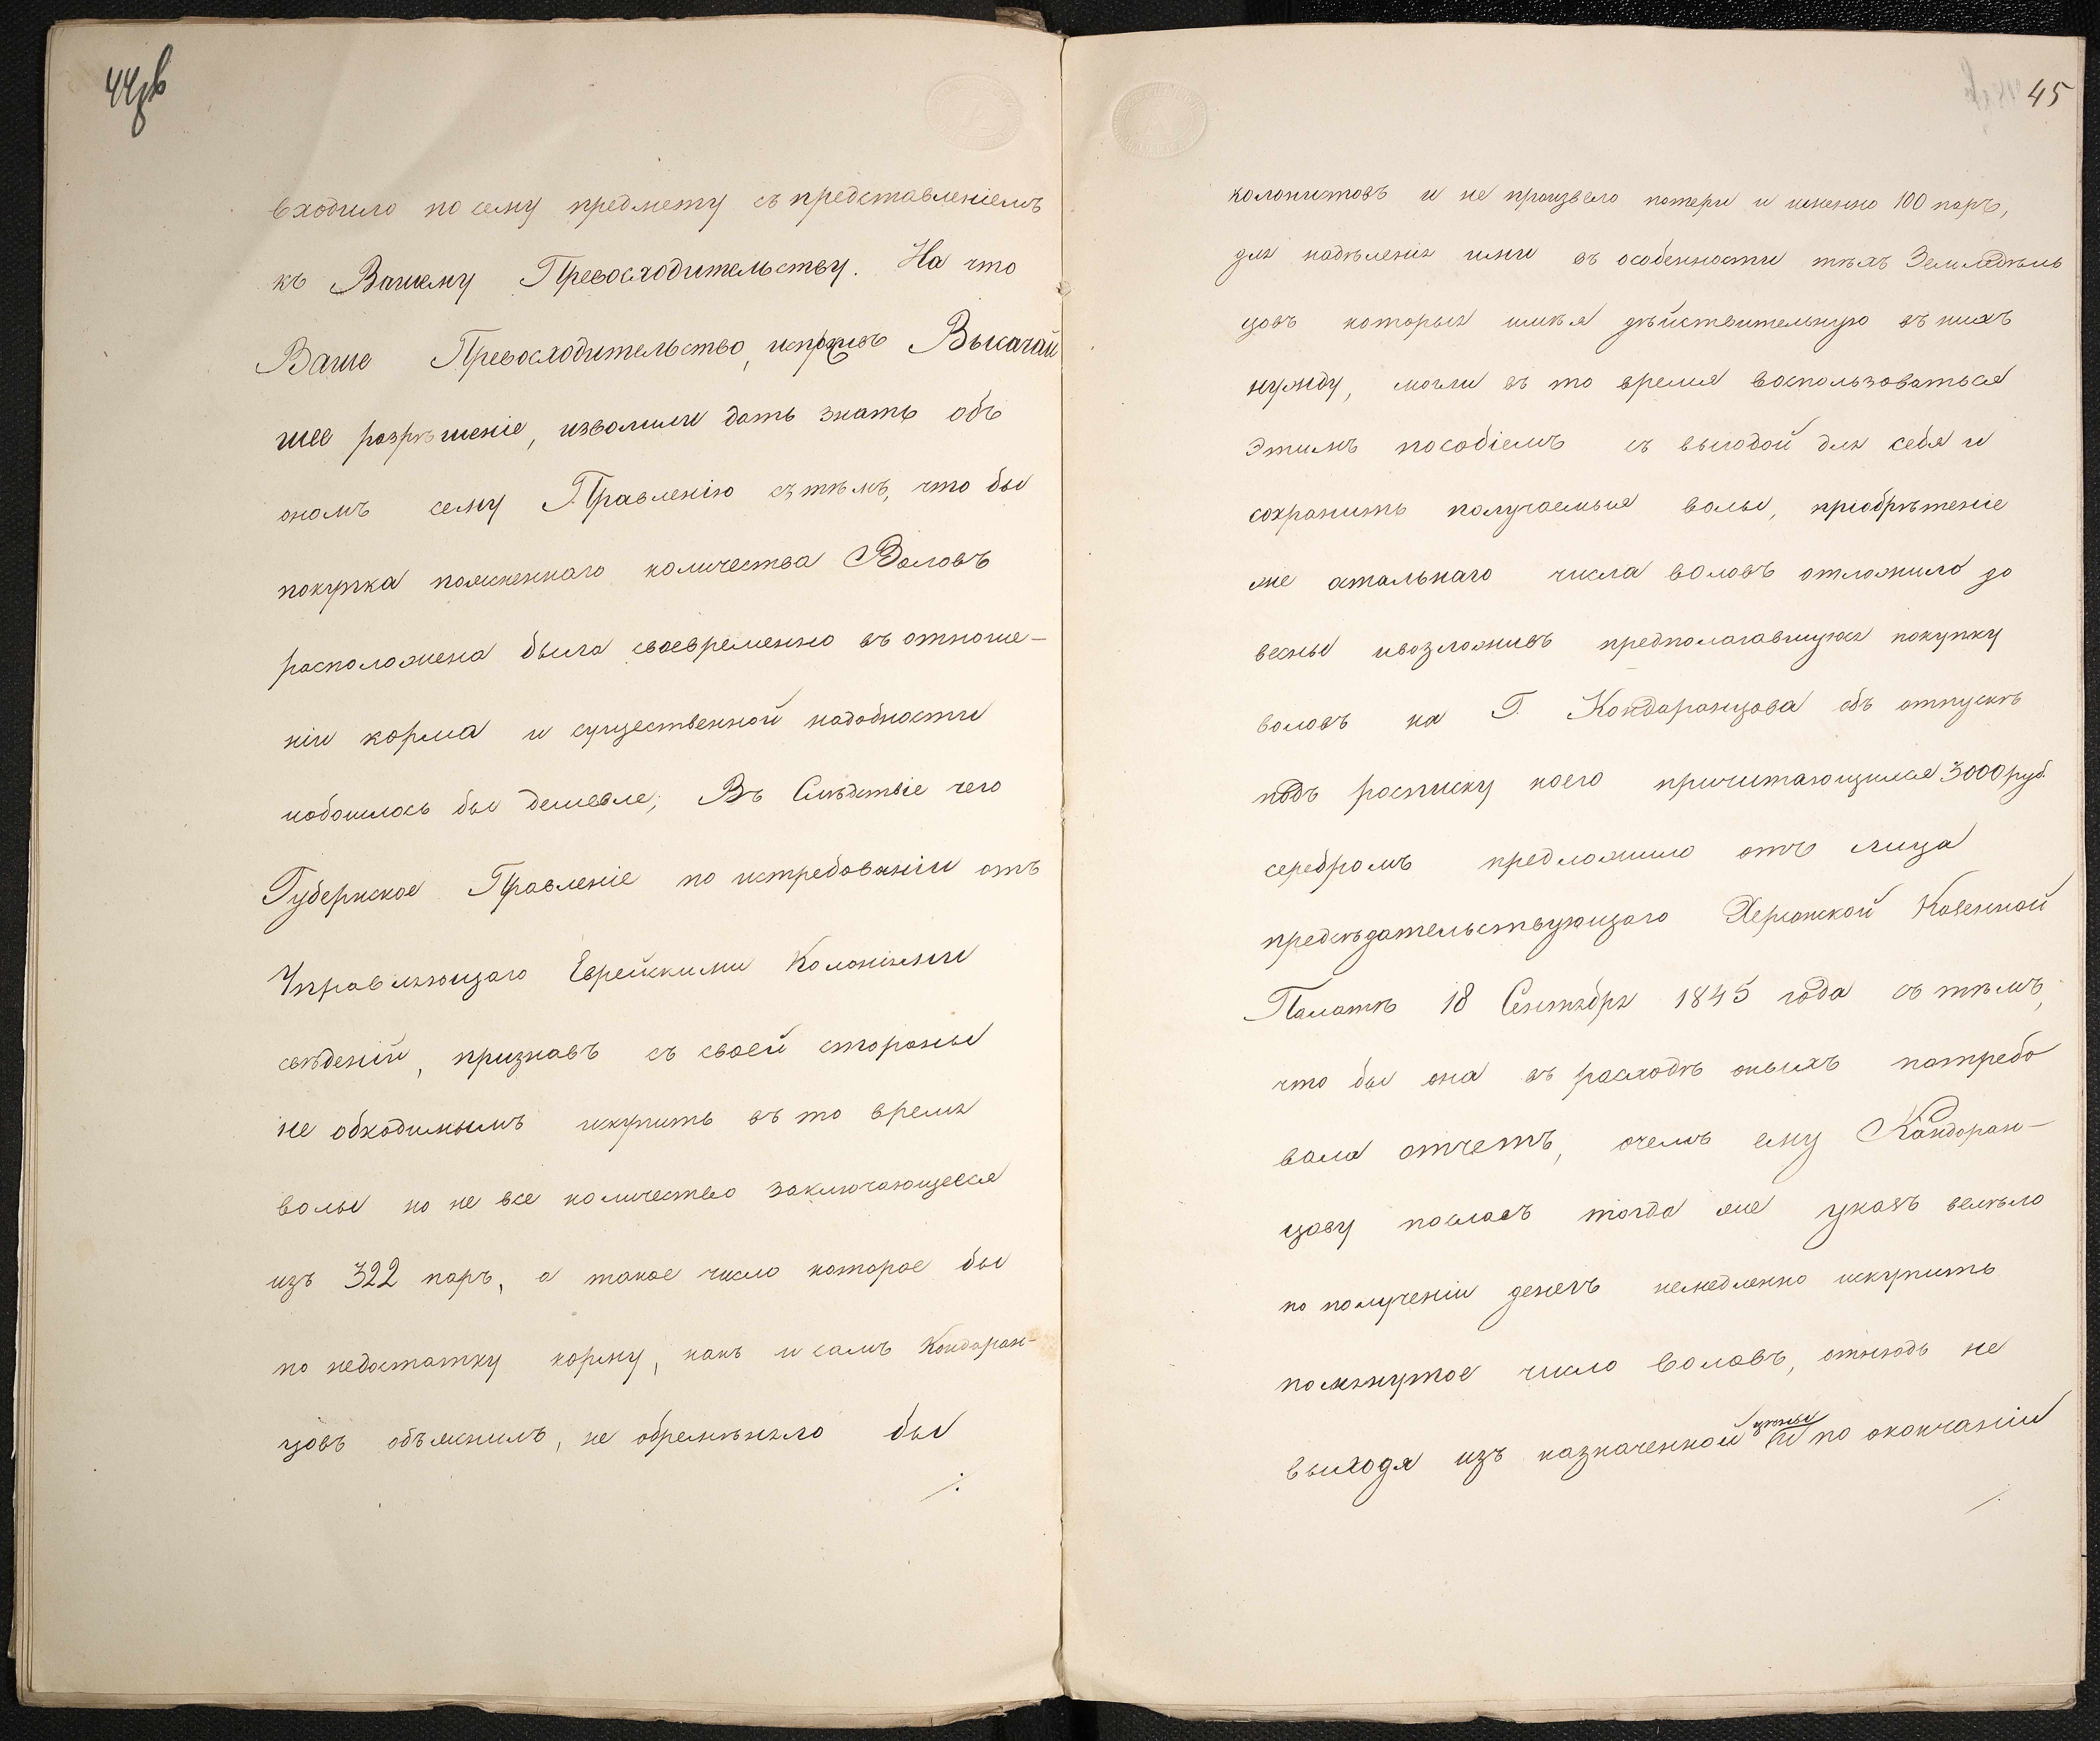 44 об
входило по сему предмету съ представленіемъ
къ Вашему Превосходительству. На что
Ваше Превосходительство, испрося Высачай
шее разрѣшеніе, изволили дать знать объ
ономъ сему Правленію съ тѣмъ, что бы
покупка поясненнаго количества Воловъ
расположена была своевременно въ отноше-
ніи корма и существенной надобности
иобошлось бы дешевле; Въ Слѣдствіе чего
Губернское Правленіе по истребованіи отъ
Управляющаго Еврейскими Колоніями
свѣденій, признавъ съ своей стороны
не обходимымъ искупить въ то время
волы но не все количество заключающееся
изъ 322 паръ, а такое число которое бы
по недостатку корму, какъ и самъ Кондоран-
цовъ объяснилъ, не обременяло бы
45
колонистовъ и не произвело потери и именно 100 паръ,
для надѣленія ими въ особенности тѣхъ Земледѣль
цовъ которыя имѣя дѣйствительную въ нихъ
нужду, могли въ то время воспользоваться
этимъ пособіемъ съ выгодой для себя и
сохранить получаемыя волы, пріобрѣтеніе
же остальнаго числа воловъ отложило до
весны ивозложивъ предполагавшуюся покупку
воловъ на Г. Кондоранцова объ отпускѣ
подъ росписку коего причитающимся 3000 руб.
серебромъ предложило отъ лица
предсѣдательствующаго Херсонской Казенной
Палатѣ 18 Сентября 1845 года съ тѣмъ,
что бы она въ расходѣ оныхъ потребо
вала отчетъ, очемъ ему Кондоран-
цову пославъ тогда же указъ велѣло
по полученіи денегъ немедленно искупить
помянутое число воловъ, отнюдь не
выходя изъ назначенной цѣны и по окончаніи